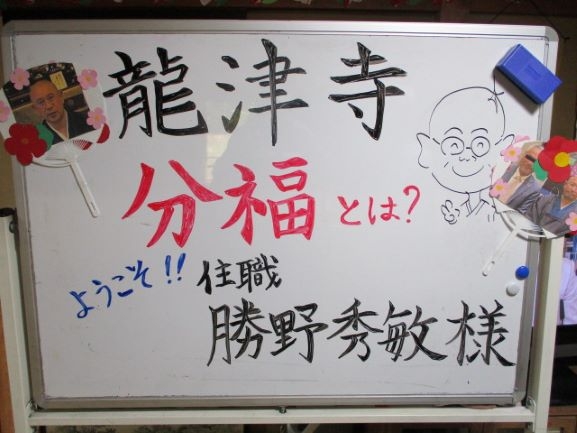 龍津寺
分福とは?
ようこそ!! 住職
勝野秀敏様